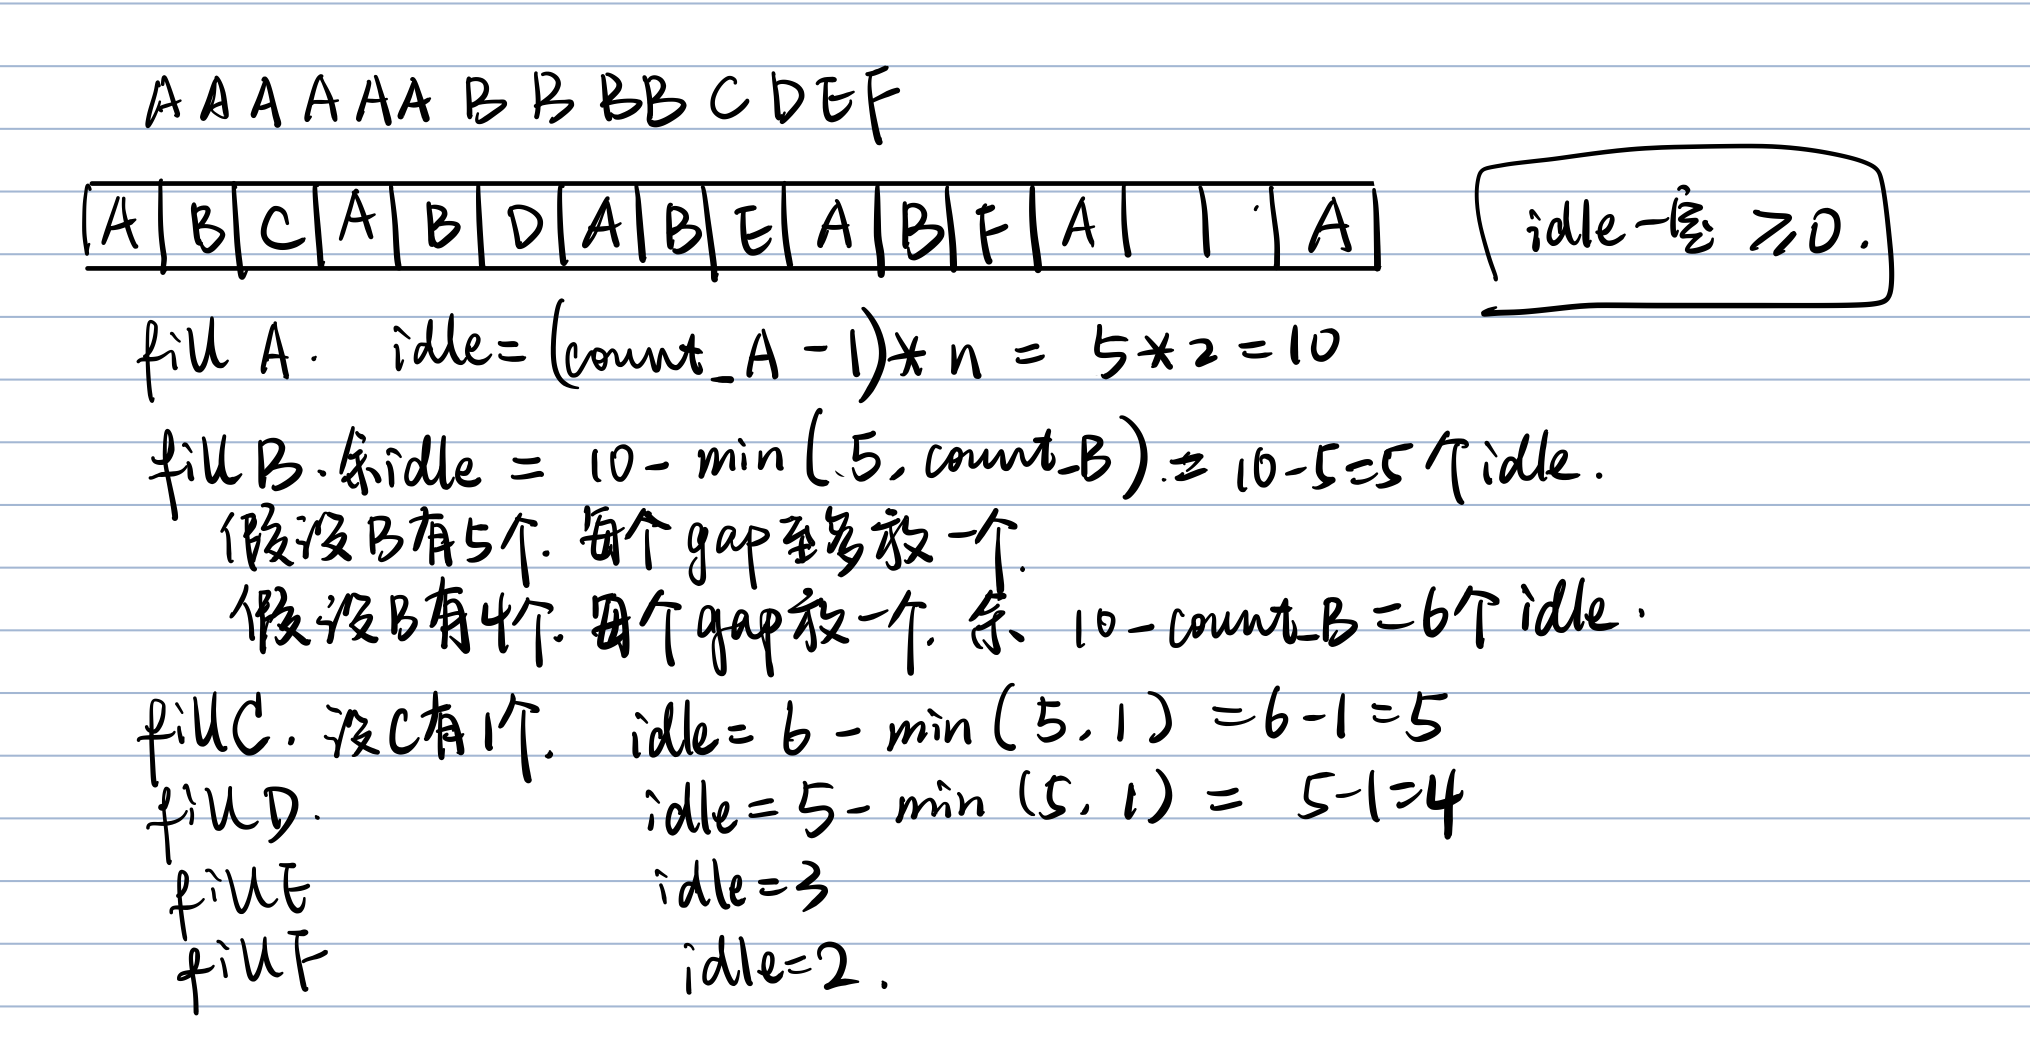 A A A A A A B B B B C D E F
A B C A B D A B E A B F A A
idle一定 ≥ 0.
fill A. idle = (count_A - 1) * n = 5 * 2 = 10
fill B. 余idle = 10 - min(5, count_B) = 10 - 5 = 5个idle.
假设B有5个. 每个gap至多放一个.
假设B有4个. 每个gap放一个. 余 10 - count_B = 6个idle.
fill C. 设C有1个. idle = 6 - min(5, 1) = 6 - 1 = 5
fill D. idle = 5 - min(5, 1) = 5 - 1 = 4
fill E idle = 3
fill F idle = 2.